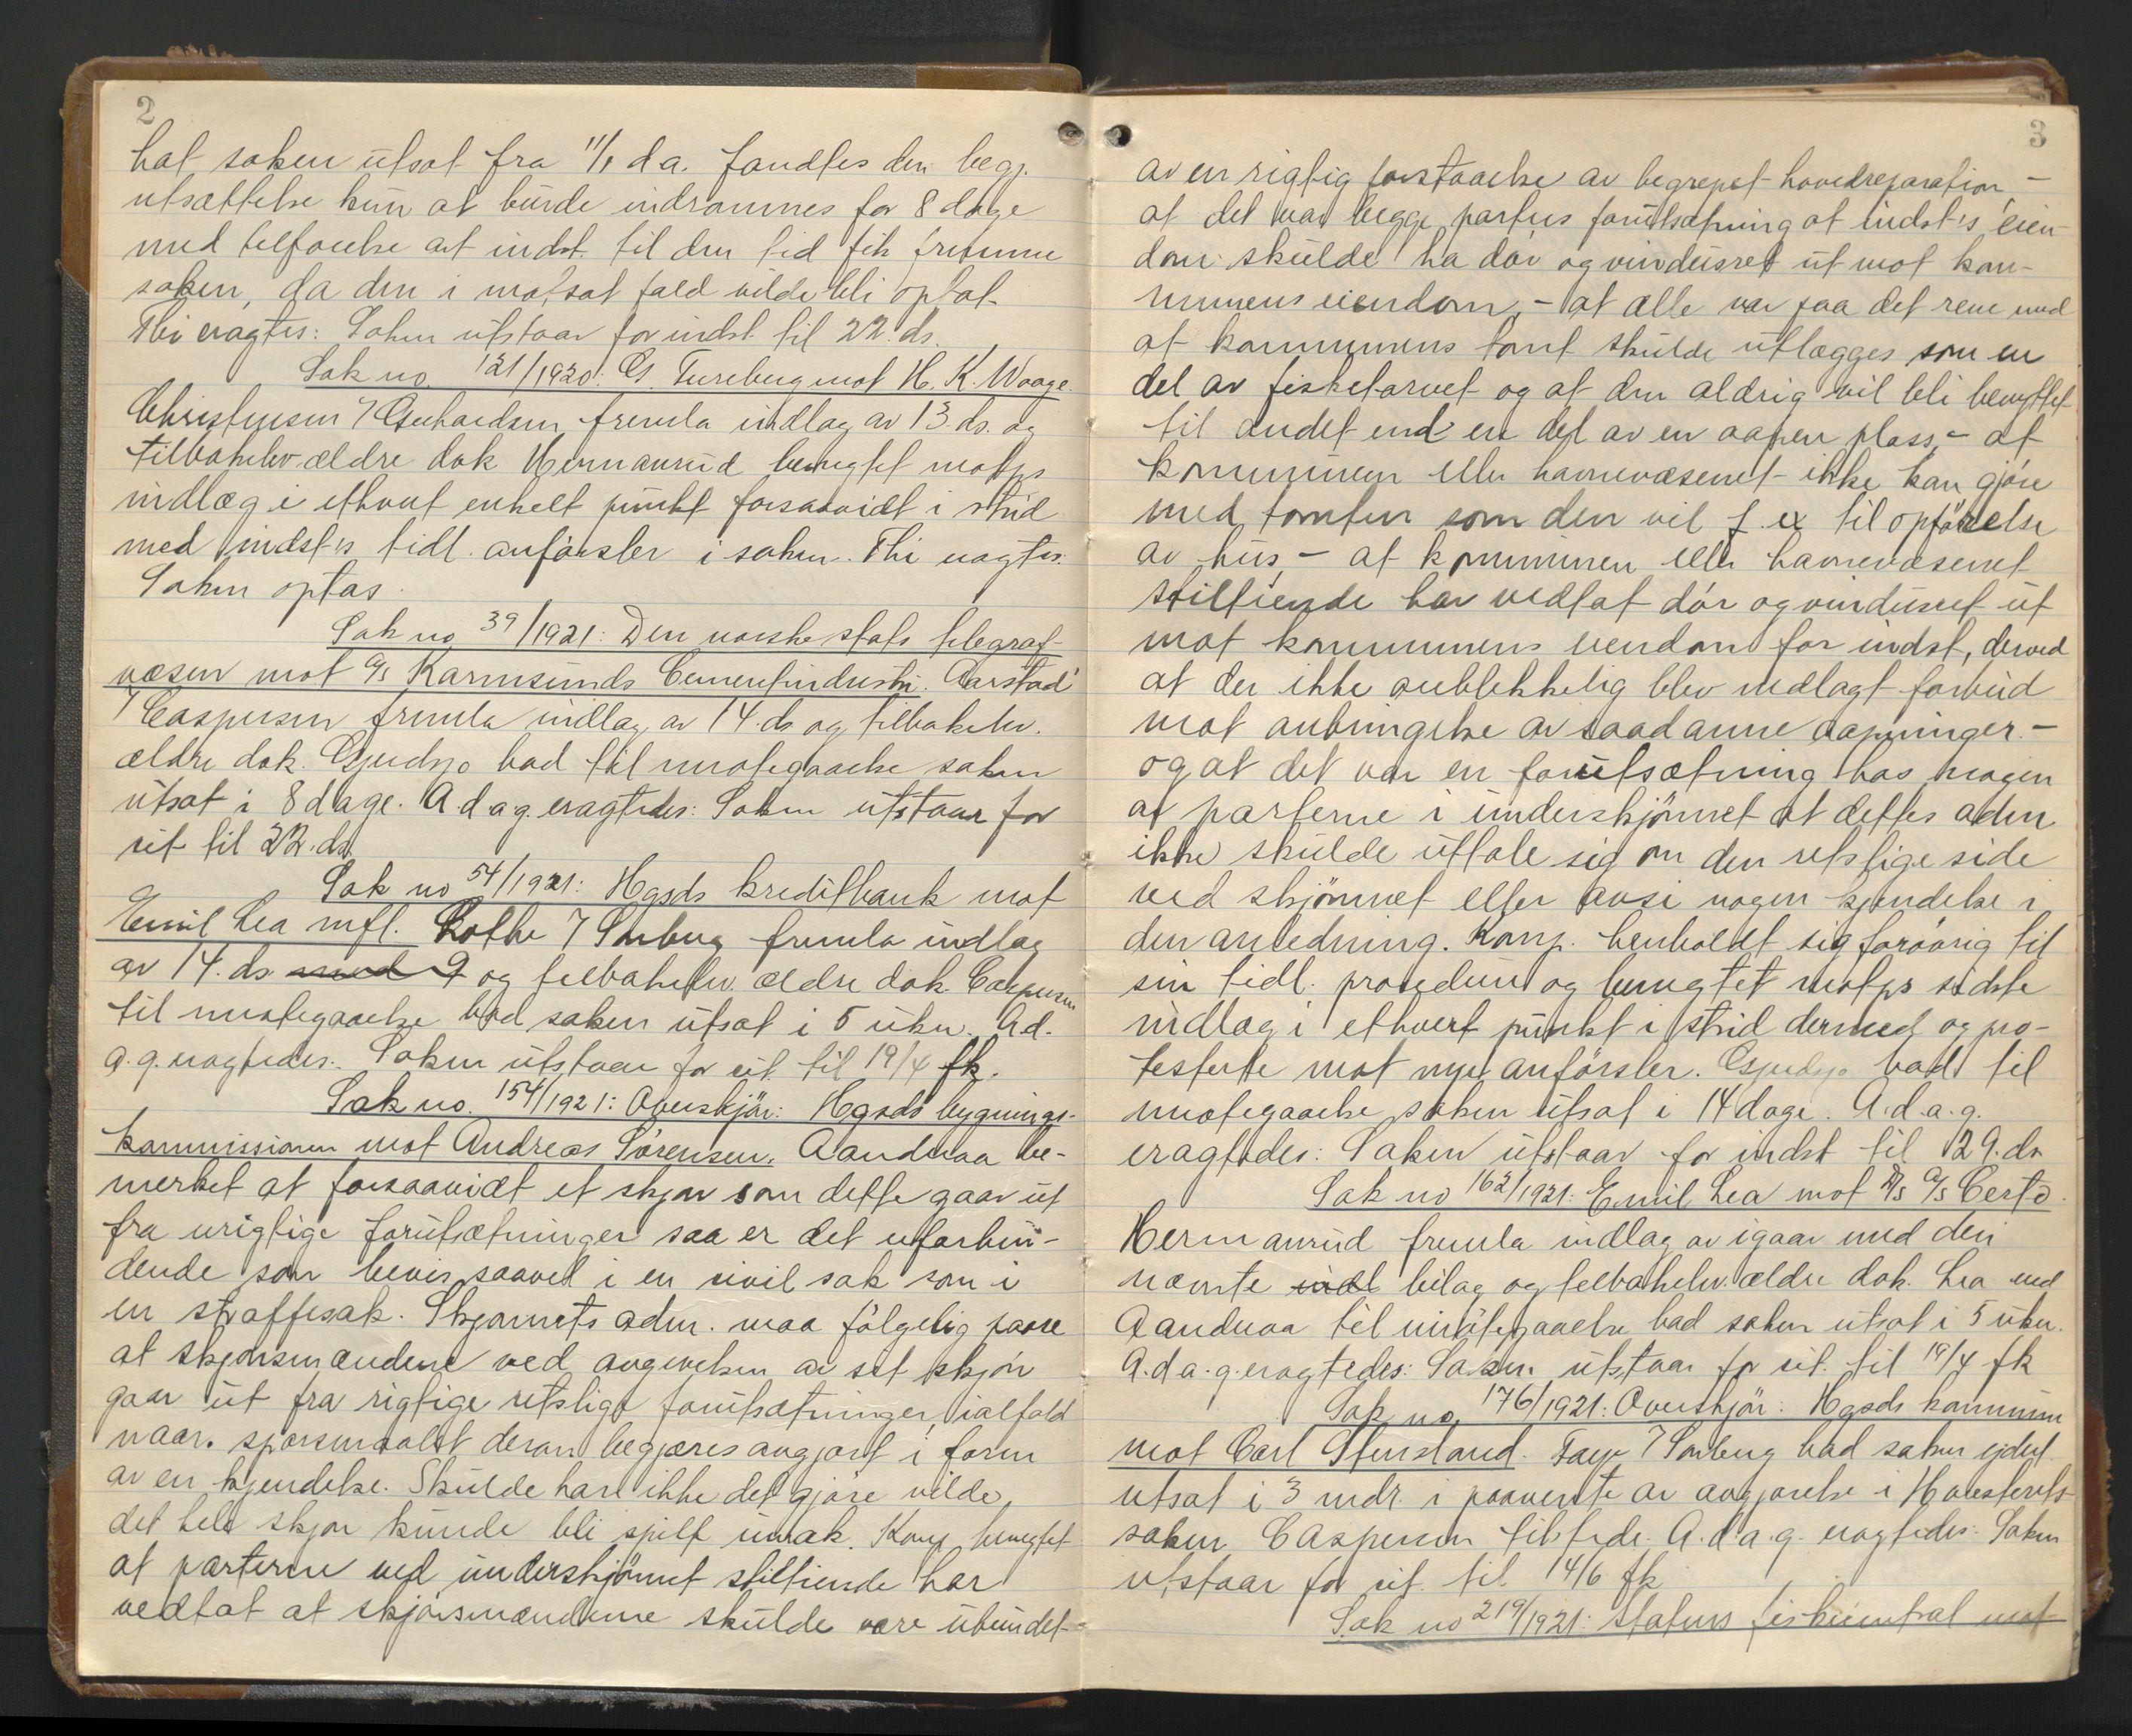 2
hat saken utsat fra 11/1 d a. fandtes den begj.
utsættelse kun at burde indrømmes for 8 dage
med tilføielse at indst. til den tid fik fremme
saken, da den i motsat fald vilde bli optat.
Thi eragtes: Saken utstaar for indst. til 22. ds.
Sak no. 121/1920: G. Tureberg mot H. K. Waage.
Christensen f Gerhardsen fremla indlæg av 13. ds. og
tilbakelev ældre dok Hermanrud benegtet motps
indlæg i ethvert enkelt punkt forsaavidt i strid
med indst's tidl. anførsler i saken. Thi eragtes:
Saken optas.
Sak no 39/1921: Den norske stats telegraf-
væsen mot A/s Karmsunds Cementindustri. Aarstad
f Caspersen fremla indlæg av 14. ds og tilbakelev.
ældre dok. Gjudsjo bad til imøtegaaelse saken
utsat i 8 dage. A. d. a. g. eragtedes: Saken utstaar for
cit til 22. ds.
Sak no 54/1921: Hgsds kreditbank mot
Emil Lea mfl. Lothe f Sørberg fremla indlæg
av 14. ds. og tilbakelev. ældre dok. Caspersen
til imøtegaaelse bad saken utsat i 5 uker. A d.
a. g. eragtedes: Saken utstaar for cit. til 19/4 fk.
Sak no. 154/1921: Overskjøn: Hgsds bygnings-
kommissionen mot Andreas Sørensen. Aanduaa be-
merket at forsaavidt et skjøn som dette gaar ut
fra urigtige forutsætninger saa er det uforbin-
dende som bevis saavel i en civil sak som i
en straffesak. Skjønnets adm. maa følgelig paase
at skjønsmændene ved avgivelsen av sit skjøn
gaar ut fra rigtige retslige forutsætninger, ialfald
naar spørsmaalet derom begjæres avgjort i form
av en kjendelse. Skulde han ikke det gjøre vilde
det hele skjøn kunde bli spilt umak. Komp benegtet
at parterne ved underskjønnet stiltiende har
vedtat at skjønsmændene skulde være ubundet
3
av en rigtig forstaaelse av begrepet hovedreparation, -
at det var begge parters forutsætning at indst's eien-
dom skulde ha dør og vindusret ut mot kom-
munens eiendom, - at alle var paa det rene med
at kommunens tomt skulde utlægges som en
del av fisketorvet og at den aldrig vil bli benyttet
til andet end en del av en aapen plass, - at
kommunen eller havnevæsenet ikke kan gjøre
med tomten som den vil f. ex til opførelse
av hus, - at kommunen eller havnevæsenet
stiltiende har vedtat dør og vindusret ut
mot kommunens eiendom for indst, derved
at der ikke øieblikkelig blev nedlagt forbud
mot anbringelse av saadanne aapninger. -
og at det var en forutsætning hos nogen
av parterne i underskjønnet at dettes adm
ikke skulde uttale sig om den retslige side
ved skjønnet eller avsi nogen kjendelse i
den anledning. Komp. henholdt sig forøvrig til
sin tidl. procedure og benegtet motps sidste
indlæg i ethvert punkt i strid dermed og pro-
testerte mot nye anførsler. Gjudsjo bad til
imøtegaaelse saken utsat i 14 dage. A. d. a. g.
eragtedes: Saken utstaar for indst til 29. ds
Sak no 162/1921: Emil Lea mot D/s A/s Certo.
Hermanrud fremla indlæg av igaar med deri
nævnte bilag og tilbakelev. ældre dok. Lea ved
Aanduaa til imøtegaaelse bad saken utsat i 5 uker.
A. d a. g. eragtedes: Saken utstaar for cit. til 19/4 fk
Sak no. 176/1921: Overskjøn: Hgsds kommune
mot Carl Stensland. Faye f Sørberg bad saken yderl.
utsat i 3 mdr. i paavente av avgjørelse i Høiesterets-
saken. Caspersen tiltraadte. A. d. a. g. eragtedes: Saken
utstaar for cit. til 14/6 fk
Sak no 219/1921: Statens fiskecentral mot